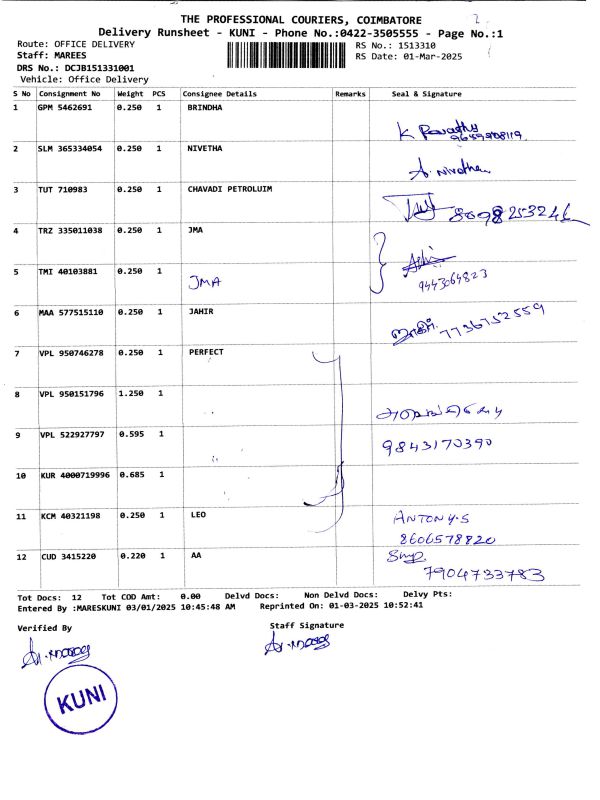 THE PROFESSIONAL COURIERS, COIMBATORE
Delivery Runsheet - KUNI - Phone No.:0422-3505555 - Page No.:1
Route: OFFICE DELIVERY
RS No.: 1513310
Staff: MAREES
RS Date: 01-Mar-2025
DRS No.: DCJB151331001
Vehicle: Office Delivery
S No Consignment No Weight PCS Consignee Details Remarks Seal & Signature
1 GPM 5462691 0.250 1 BRINDHA
9659908119
2 SLM 365334054 0.250 1 NIVETHA
A. Nivetha
3 TUT 710983 0.250 1 CHAVADI PETROLUIM
8098253246
4 TRZ 335011038 0.250 1 JMA
5 TMI 40103881 0.250 1 JMA
9443064823
6 MAA 577515110 0.250 1 JAHIR
7736752559
7 VPL 950746278 0.250 1 PERFECT
8 VPL 950151796 1.250 1
9 VPL 522927797 0.595 1
9843170390
10 KUR 4000719996 0.685 1
11 KCM 40321198 0.250 1 LEO
ANTONY.S
8606578820
12 CUD 3415220 0.220 1 AA
7904733783
Tot Docs: 12 Tot COD Amt: 0.00 Delvd Docs: Non Delvd Docs: Delvy Pts:
Entered By :MARESKUNI 03/01/2025 10:45:48 AM Reprinted On: 01-03-2025 10:52:41
Verified By
Staff Signature
KUNI